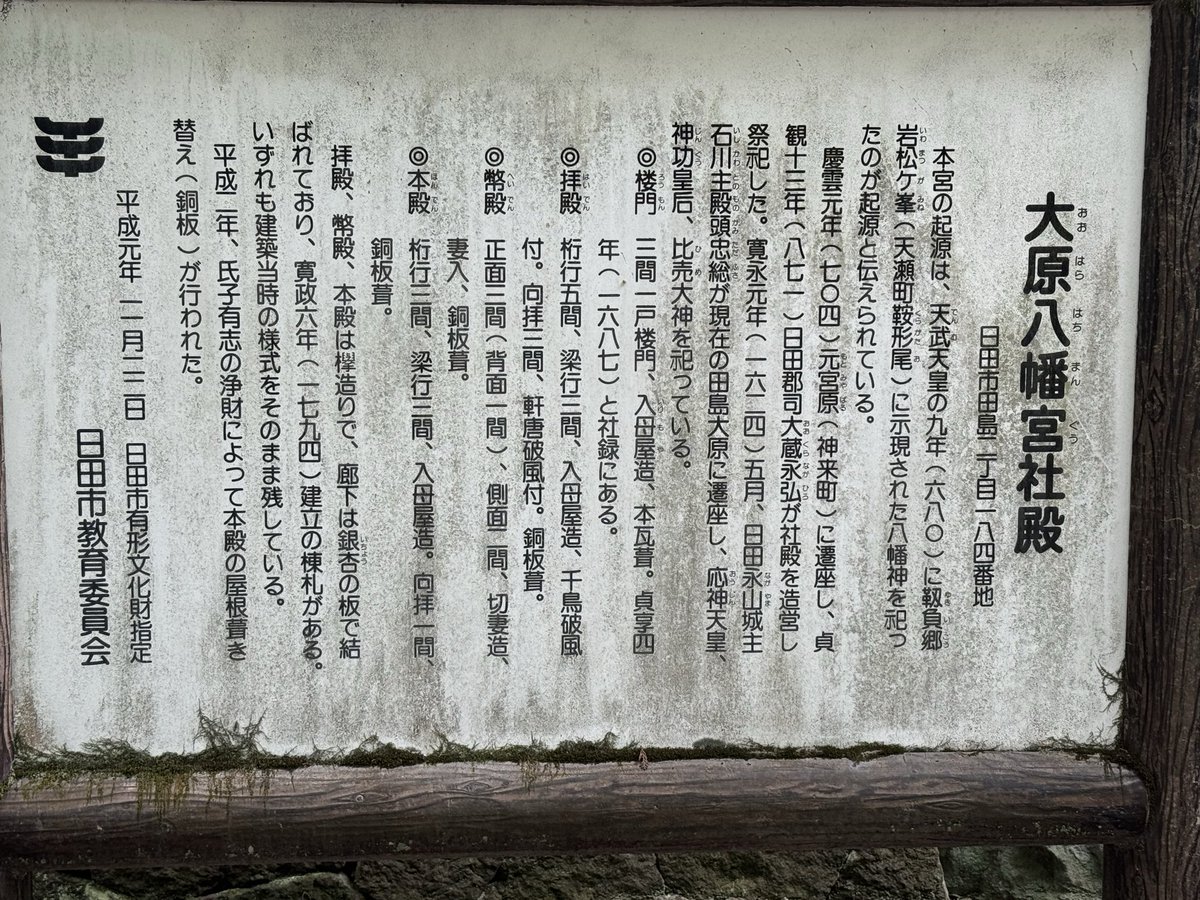 大原八幡宮社殿
日田市田島二丁目一八四番地
本宮の起源は、天武天皇の九年(六八〇)に靱負郷
岩松ケ峯(天瀬町鞍形尾)に示現された八幡神を祀っ
たのが起源と伝えられている。
慶雲元年(七〇四)元宮原(神来町)に遷座し、貞
観十三年(八七一)日田郡司大蔵永弘が社殿を造営し
祭祀した。寛永元年(一六二四)五月、日田永山城主
石川主殿頭忠総が現在の田島大原に遷座し、応神天皇、
神功皇后、比売大神を祀っている。
◎楼門 三間一戸楼門、入母屋造、本瓦葺。貞享四
年(一六八七)と社録にある。
◎拝殿 桁行五間、梁行二間、入母屋造、千鳥破風
付。向拝三間、軒唐破風付。銅板葺。
◎幣殿 正面三間(背面一間)、側面二間、切妻造、
妻入、銅板葺。
◎本殿 桁行三間、梁行三間、入母屋造。向拝一間、
銅板葺。
拝殿、幣殿、本殿は欅造りで、廊下は銀杏の板で結
ばれており、寛政六年(一七九四)建立の棟札がある。
いずれも建築当時の様式をそのまま残している。
平成二年、氏子有志の浄財によって本殿の屋根葺き
替え(銅板)が行われた。
平成元年 一一月二二日 日田市有形文化財指定
日田市教育委員会